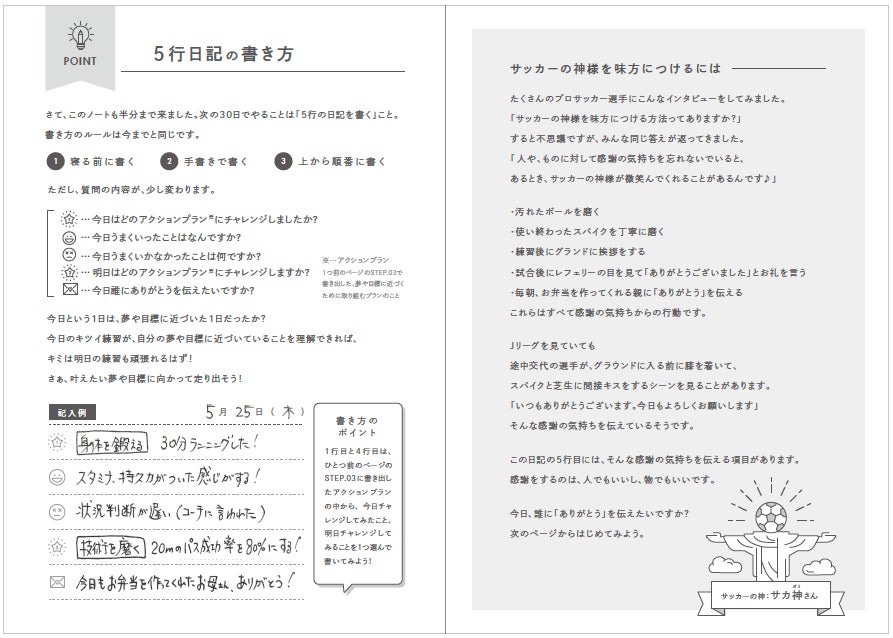 POINT
5行日記の書き方
さて、このノートも半分まで来ました。次の30日でやることは「5行の日記を書く」こと。
書き方のルールは今までと同じです。
1 寝る前に書く 2 手書きで書く 3 上から順番に書く
ただし、質問の内容が、少し変わります。
…今日はどのアクションプラン※にチャレンジしましたか?
…今日うまくいったことはなんですか?
…今日うまくいかなかったことは何ですか?
…明日はどのアクションプラン※にチャレンジしますか?
…今日誰にありがとうを伝えたいですか?
※…アクションプラン
1つ前のページのSTEP.03で
書き出した、夢や目標に近づく
ために取り組むプランのこと
今日という1日は、夢や目標に近づいた1日だったか?
今日のキツイ練習が、自分の夢や目標に近づいていることを理解できれば、
キミは明日の練習も頑張れるはず!
さぁ、叶えたい夢や目標に向かって走り出そう!
記入例
5月25日(木)
身体を鍛える 30分ランニングした!
スタミナ、持久力がついた感じがする!
状況判断が遅い(コーチに言われた)
技術を磨く 20mのパス成功率を80%にする!
今日もお弁当を作ってくれたお母さん、ありがとう!
書き方の
ポイント
1行目と4行目は、
ひとつ前のページの
STEP.03に書き出し
たアクションプラン
の中から、今日チャ
レンジしてみたこと、
明日チャレンジして
みることを1つ選んで
書いてみよう!
サッカーの神様を味方につけるには
たくさんのプロサッカー選手にこんなインタビューをしてみました。
「サッカーの神様を味方につける方法ってありますか?」
すると不思議ですが、みんな同じ答えが返ってきました。
「人や、ものに対して感謝の気持ちを忘れないでいると、
あるとき、サッカーの神様が微笑んでくれることがあるんです♪」
・汚れたボールを磨く
・使い終わったスパイクを丁寧に磨く
・練習後にグランドに挨拶をする
・試合後にレフェリーの目を見て「ありがとうございました」とお礼を言う
・毎朝、お弁当を作ってくれる親に「ありがとう」を伝える
これらはすべて感謝の気持ちからの行動です。
Jリーグを見ていても
途中交代の選手が、グラウンドに入る前に膝を着いて、
スパイクと芝生に間接キスをするシーンを見ることがあります。
「いつもありがとうございます。今日もよろしくお願いします」
そんな感謝の気持ちを伝えているそうです。
この日記の5行目には、そんな感謝の気持ちを伝える項目があります。
感謝をするのは、人でもいいし、物でもいいです。
今日、誰に「ありがとう」を伝えたいですか?
次のページからはじめてみよう。
サッカーの神:サカ神さん